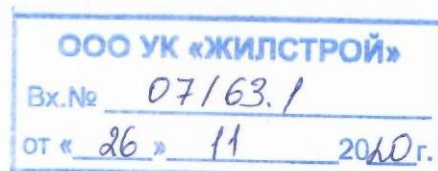 ООО УК «ЖИЛСТРОЙ»
Вх.№ 07/63.1
от « 26 » 11 2020г.